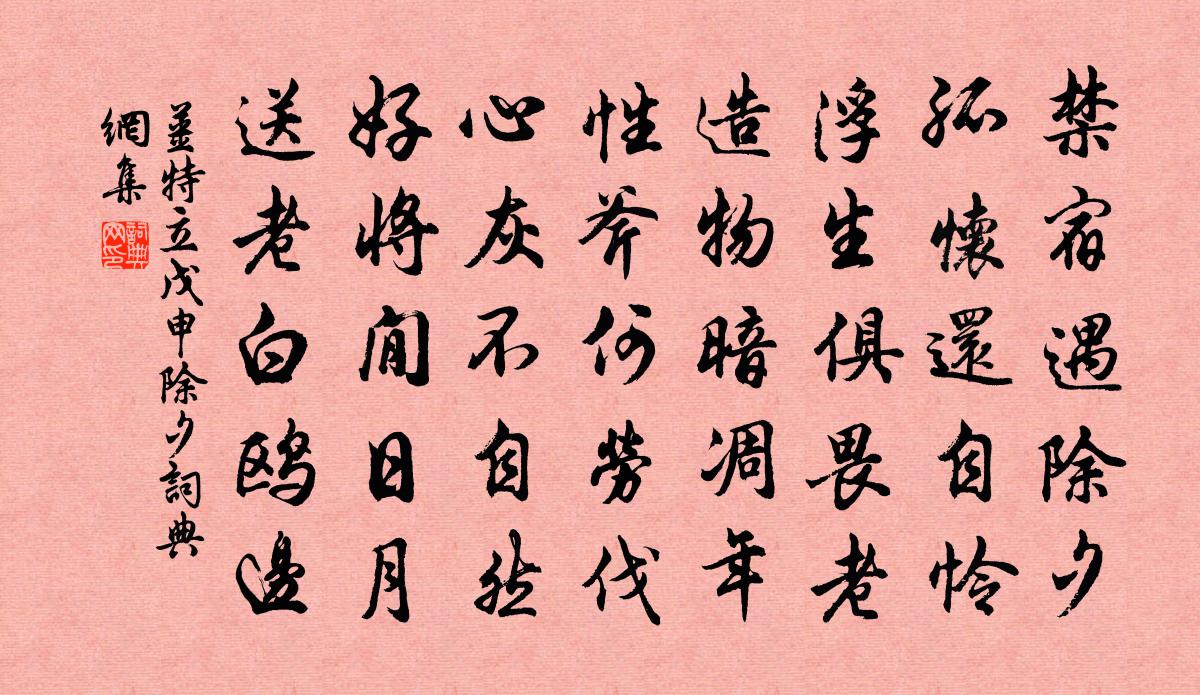 禁宿遇除夕
孤懷還自怜
浮生俱畏老
造物暗凋年
性斧何勞伐
心灰不自然
好將閒日月
送老白鸥邊
姜特立戊申除夕詞典
網集
詞典網印